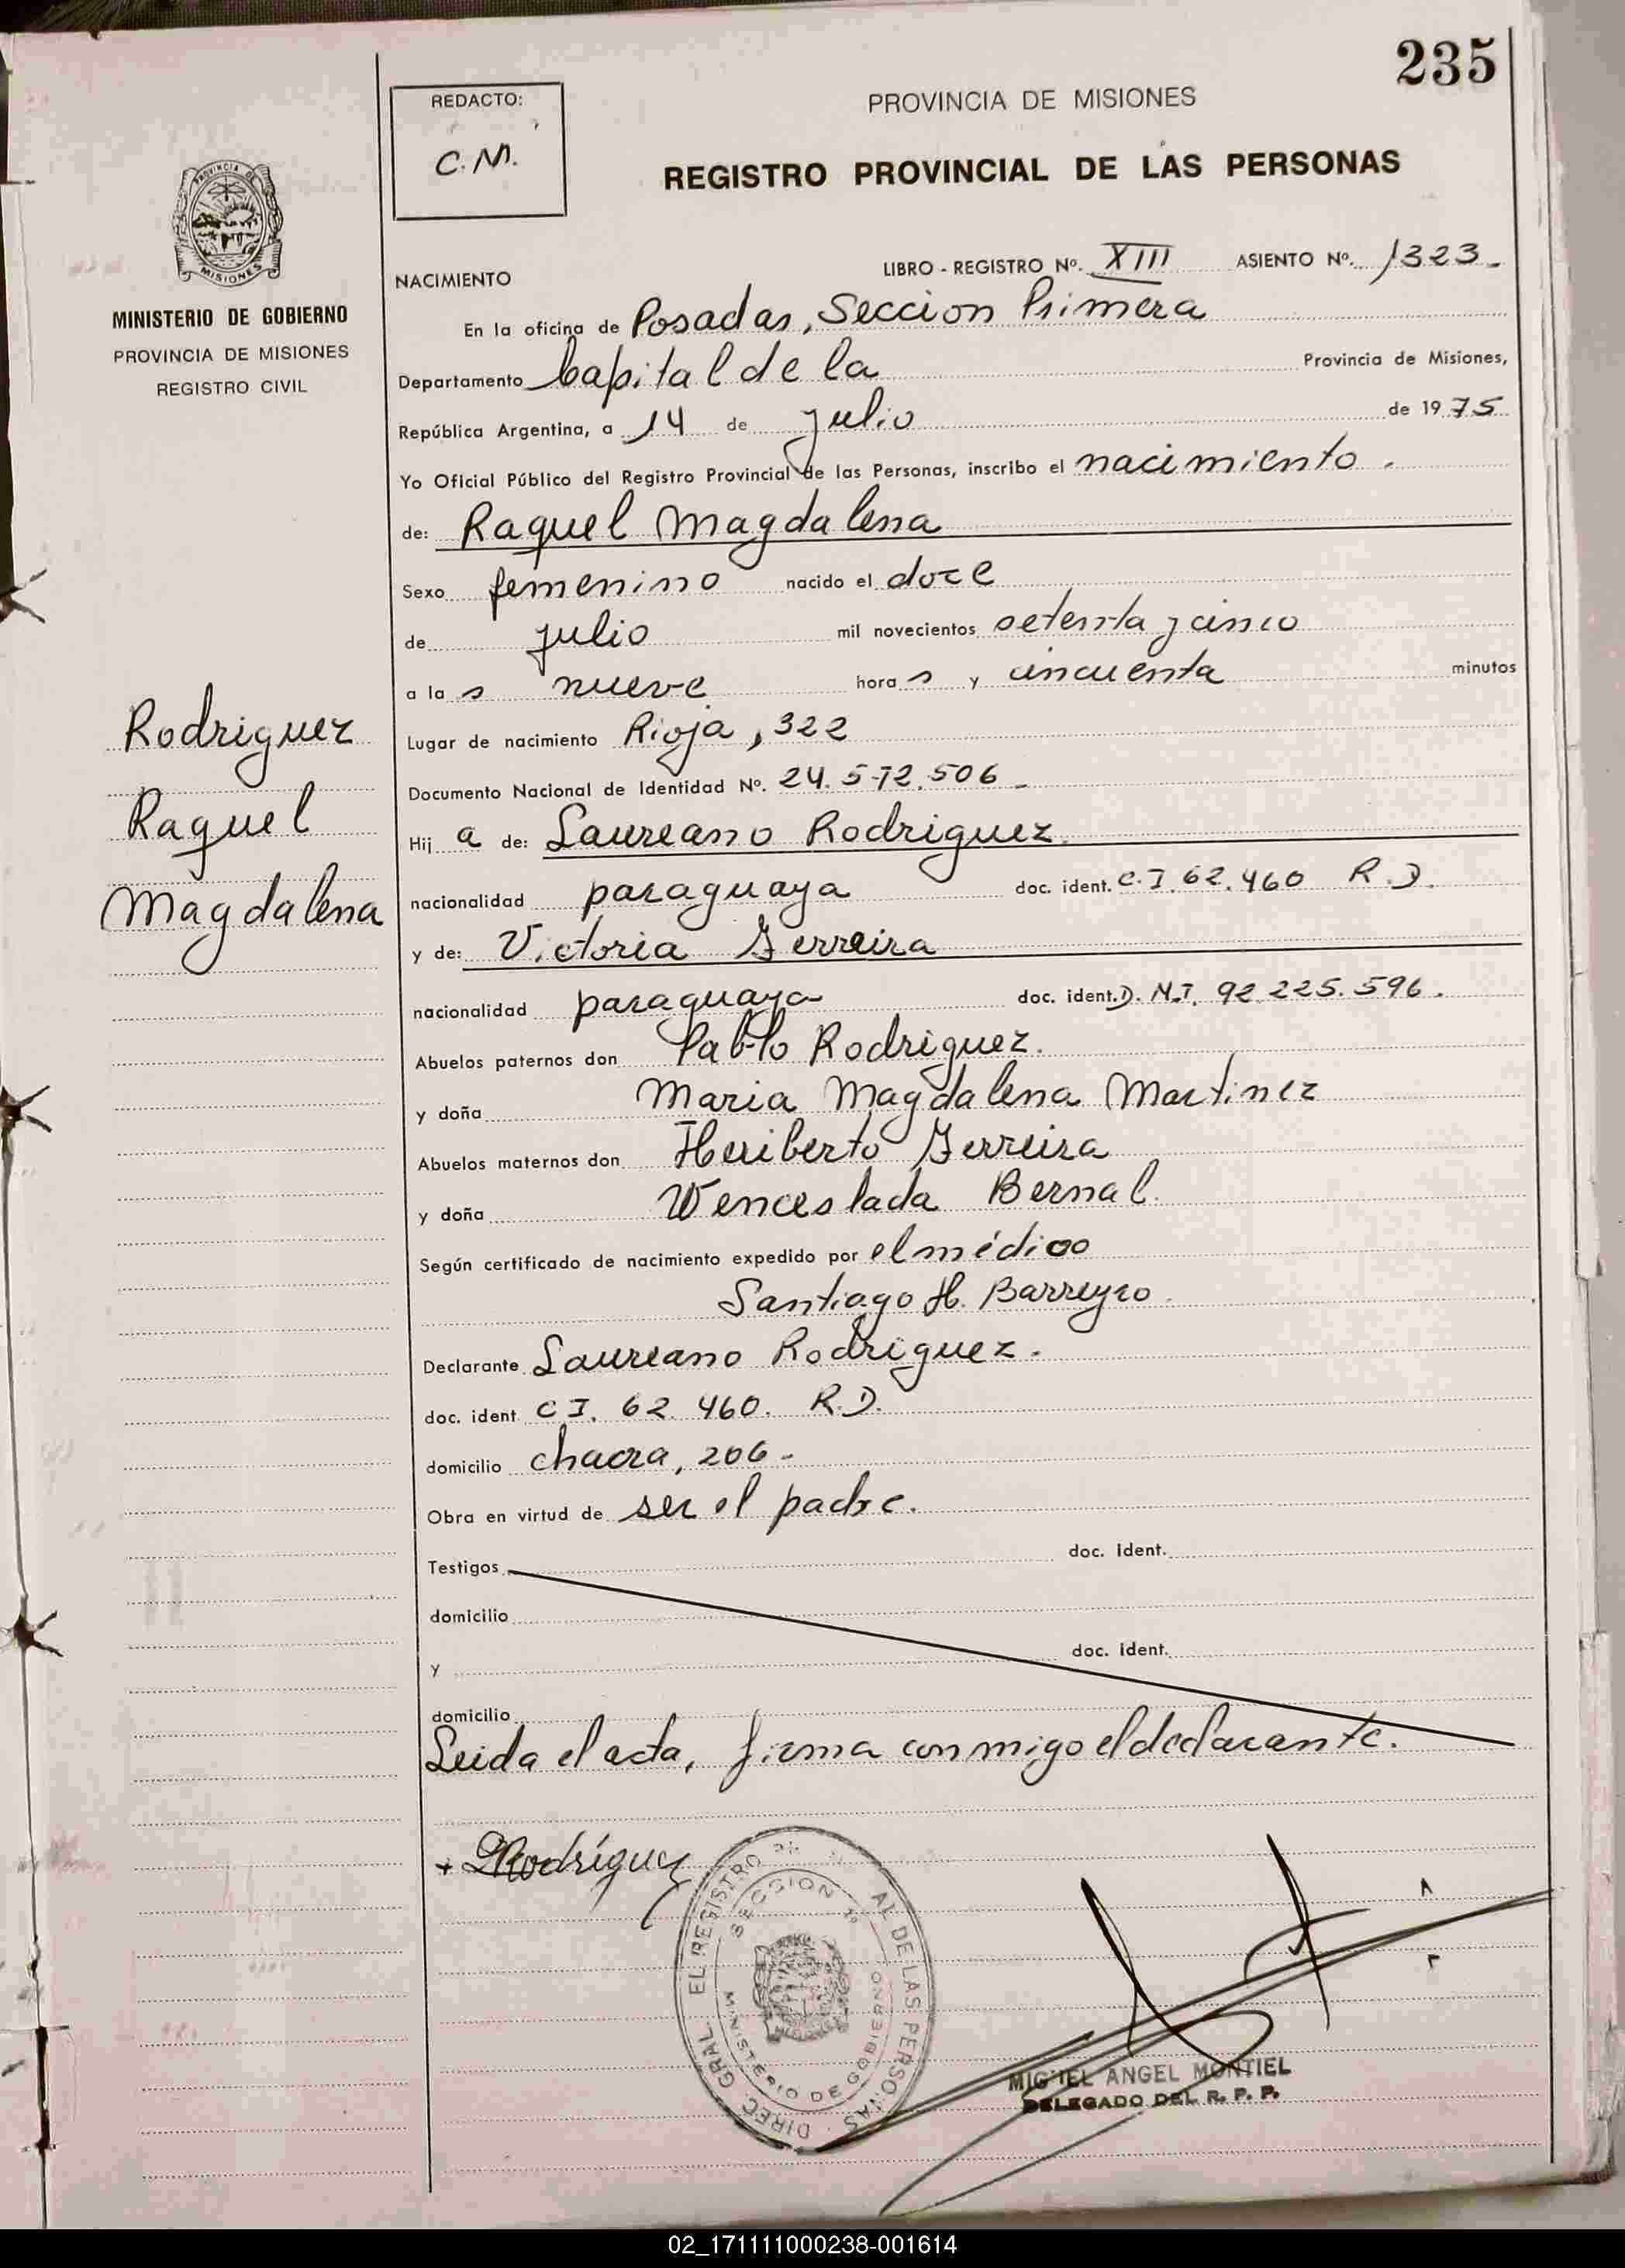 235
REDACTO:
C.M.
PROVINCIA DE MISIONES
REGISTRO PROVINCIAL DE LAS PERSONAS
PROVINCIA DE
MISIONES
MINISTERIO DE GOBIERNO
PROVINCIA DE MISIONES
REGISTRO CIVIL
LIBRO - REGISTRO Nº. XIII ASIENTO Nº. 1323-
NACIMIENTO
En la oficina de Posadas, Seccion Primera
Departamento Capital de la Provincia de Misiones,
República Argentina, a 14 de julio de 1975
Yo Oficial Público del Registro Provincial de las Personas, inscribo el nacimiento.
de: Raquel Magdalena
Sexo femenino nacido el doce
de julio mil novecientos setenta y cinco
a la s nueve hora s y cincuenta minutos
Lugar de nacimiento Rioja, 322
Documento Nacional de Identidad Nº. 24.572.506-
Rodriguez
Raquel
Magdalena
Hij a de: Laureano Rodriguez
nacionalidad paraguaya doc. ident. C.I. 62.460 R.D.
y de: Victoria Ferreira
nacionalidad paraguaya doc. ident. D.N.I. 92.225.596.
Abuelos paternos don Pablo Rodriguez.
y doña Maria Magdalena Martinez
Abuelos maternos don Heriberto Ferreira
y doña Wenceslada Bernal.
Según certificado de nacimiento expedido por el médico
Santiago H. Barreyro.
Declarante Laureano Rodriguez.
doc. ident. C I. 62. 460. R.D.
domicilio chacra, 206-
Obra en virtud de ser el padre.
Testigos doc. ident.
domicilio
y doc. ident.
domicilio
Leida el acta, firma conmigo el declarante.
LRodríguez
DIREC. GRAL. EL REGISTRO AL DE LAS PERSONAS
SECCION 1º
MINISTERIO DE GOBIERNO
MIGUEL ANGEL MONTIEL
DELEGADO DEL R. P. P.
02_171111000238-001614